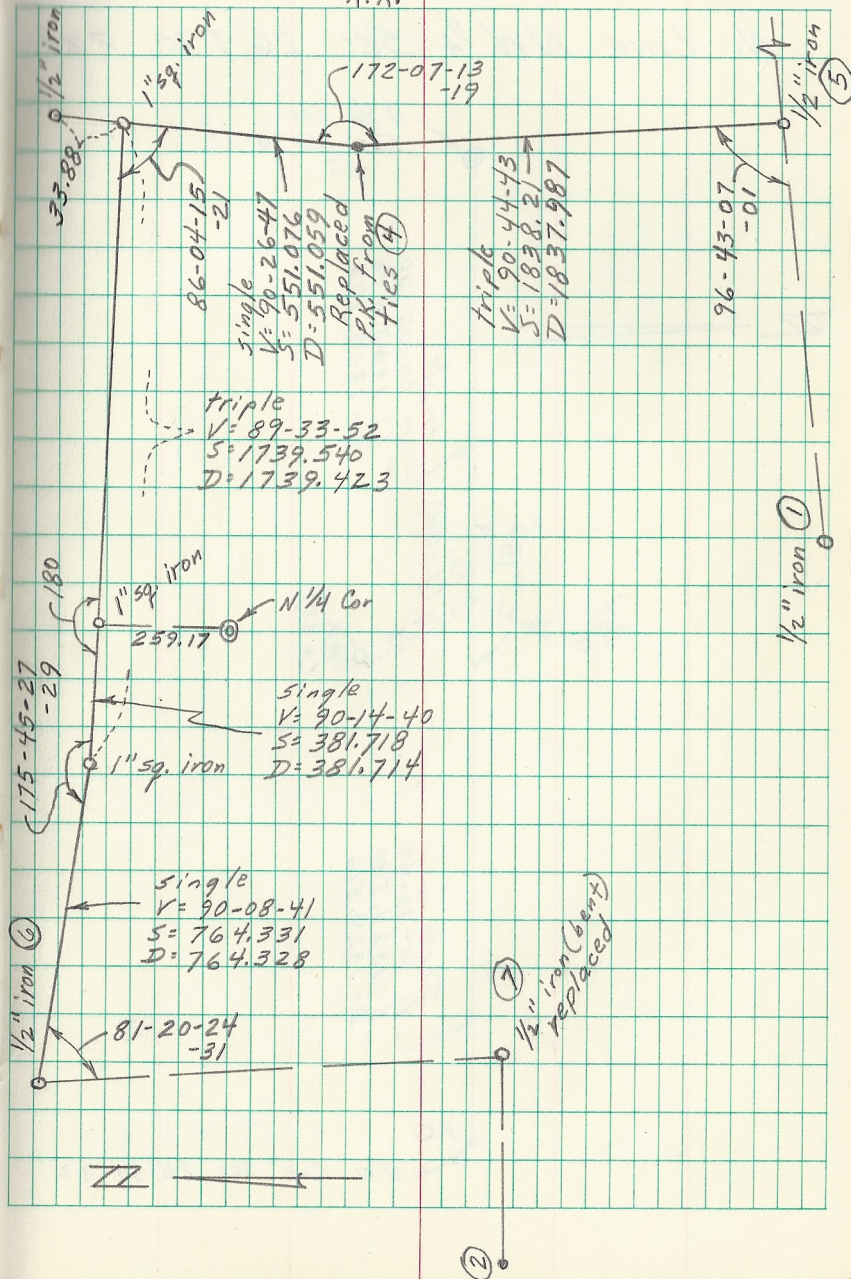 1/2" iron
1" sq. iron
33.88
172-07-13
-19
1/2" iron
5
86-04-15
-21
single
V= 90-26-47
S= 551.076
D= 551.059
Replaced
P.K. from
ties 4
triple
V= 90-44-43
S= 1838.21
D= 1837.987
96-43-07
-01
triple
V= 89-33-52
S= 1739.540
D= 1739.423
1/2" iron 1
180
1" sq. iron
N 1/4 Cor
259.17
175-45-27
-29
single
V= 90-14-40
S= 381.718
D= 381.714
1" sq. iron
single
V= 90-08-41
S= 764.331
D= 764.328
1/2" iron 6
81-20-24
-31
7
1/2" iron (bent)
replaced
N
2